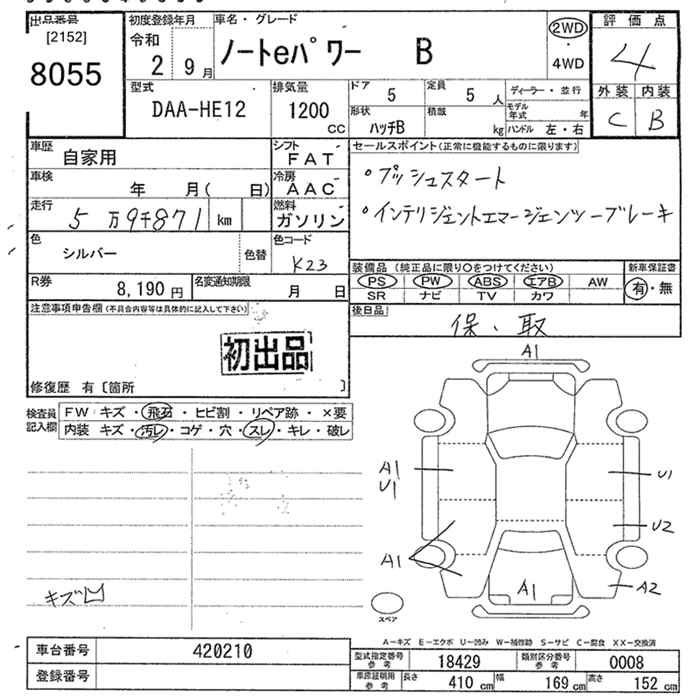 出品番号
[2152]
8055
初度登録年月
令和
2 9月
車名・グレード
ノートeパワー B
2WD
・
4WD
評価点
4
外装 内装
C B
型式
DAA-HE12
排気量
1200
CC
ドア
5
定員
5 人
ディーラー・並行
形状
ハッチB
積載
kg
モデル年式 年
ハンドル 左・右
車歴
自家用
シフト
FAT
車検
年 月( 日)
冷房
AAC
走行
5万9千871 km
燃料
ガソリン
色
シルバー
色替
色コード
K23
R券
8,190 円
名変通知期限
月 日
セールスポイント(正常に機能するものに限ります)
・プッシュスタート
・インテリジェントエマージェンツーブレーキ
装備品(純正品に限り○をつけてください)
PS PW ABS エアB AW
SR ナビ TV カワ
新車保証書
有・無
後日品
保、取
注意事項申告欄(不具合内容等は具体的に記入して下さい)
初出品
修復歴 有〔箇所 〕
検査員
記入欄
FW キズ・飛石・ヒビ割・リペア跡・×要
内装 キズ・汚レ・コゲ・穴・スレ・キレ・破レ
キズ
A1
A1
U1
U1
U2
A1
A1
A2
スペア
A-キズ E-エクボ U-凹み W-補修跡 S-サビ C-腐食 XX-交換済
車台番号
420210
登録番号
型式指定番号
参考
18429
類別区分番号
参考
0008
車庫証明用
参考
長さ
410 cm
幅
169 cm
高さ
152 cm